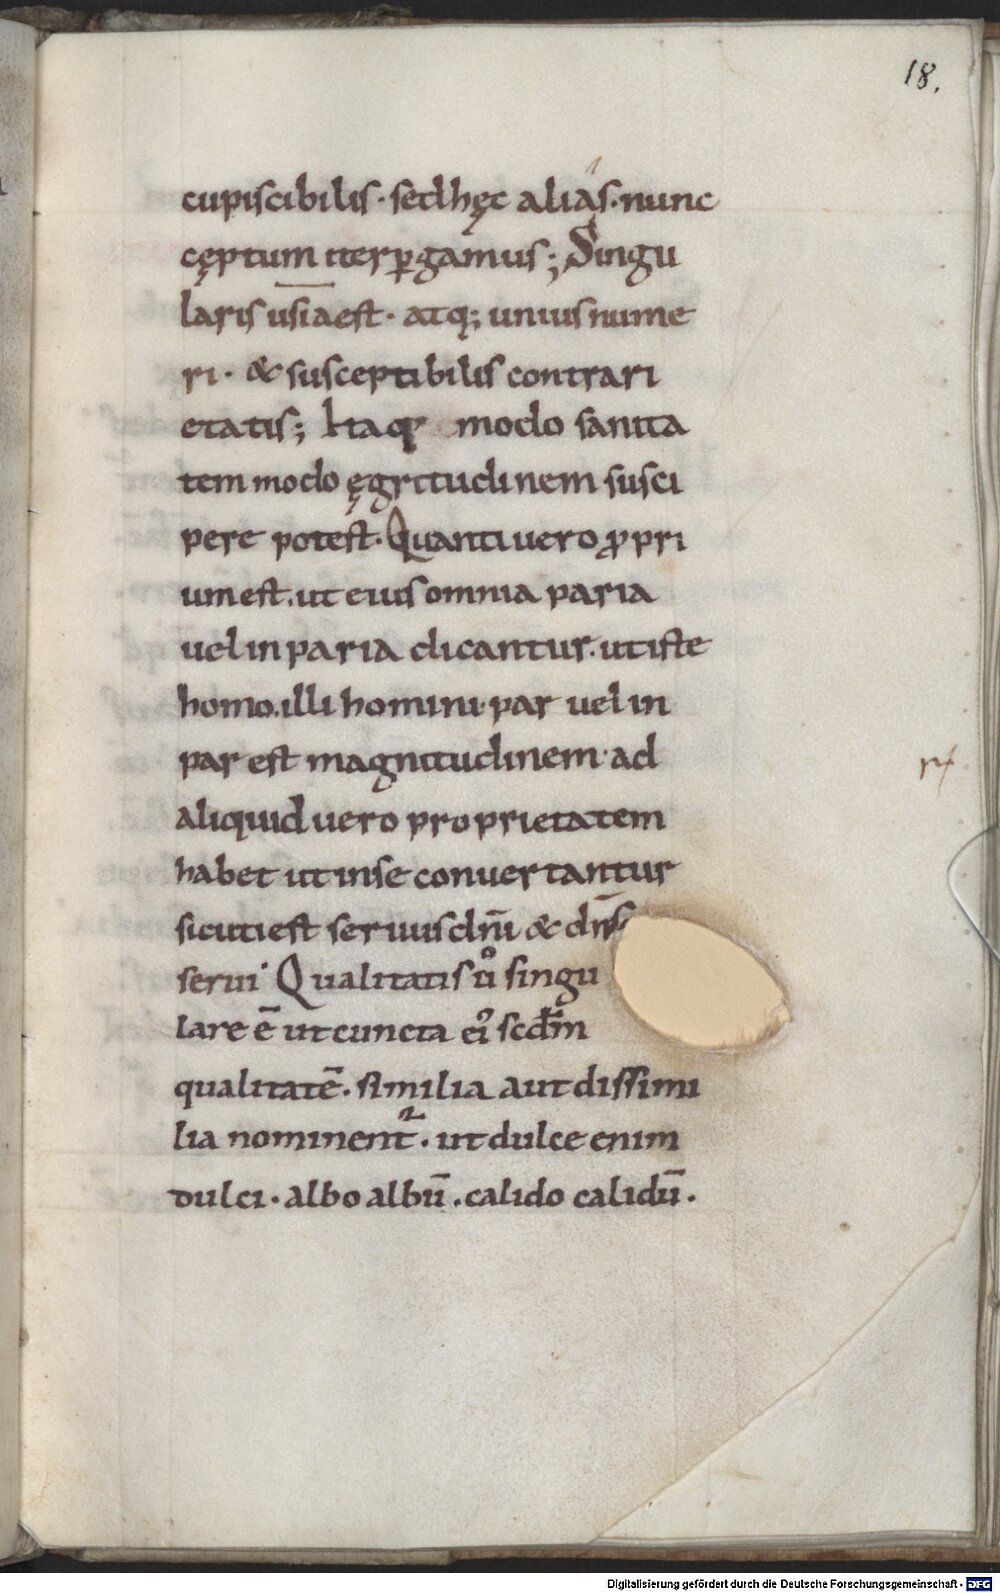 18.
cupiscibilis · sed hęc aliás · nunc
cęptum iter p̱gamus ; Singu
laris usia est · atq; unius nume
ri · & susceptibilis contrari
etatis ; Itaq modo sanita
tem modo ęgritudinem susci
pere potest · Quanti uero ꝓpri
um est . ut eius omnia paria
uel in paria dicantur . ut iste
homo . illi homini · par uel in
par est magnitudinem · ad
aliquid uero proprietatem
habet ut in se conuertantur
sicuti est seruus dn̄i & dn̄s
serui · Qualitatis u̾ singu
lare ē ut cuncta ei᾽ scdm̄
qualitatē . similia aut dissimi
lia nominent᷑ . ut dulce enim
dulci · albo albū . calido calidū .
Digitalisierung gefördert durch die Deutsche Forschungsgemeinschaft - DFG